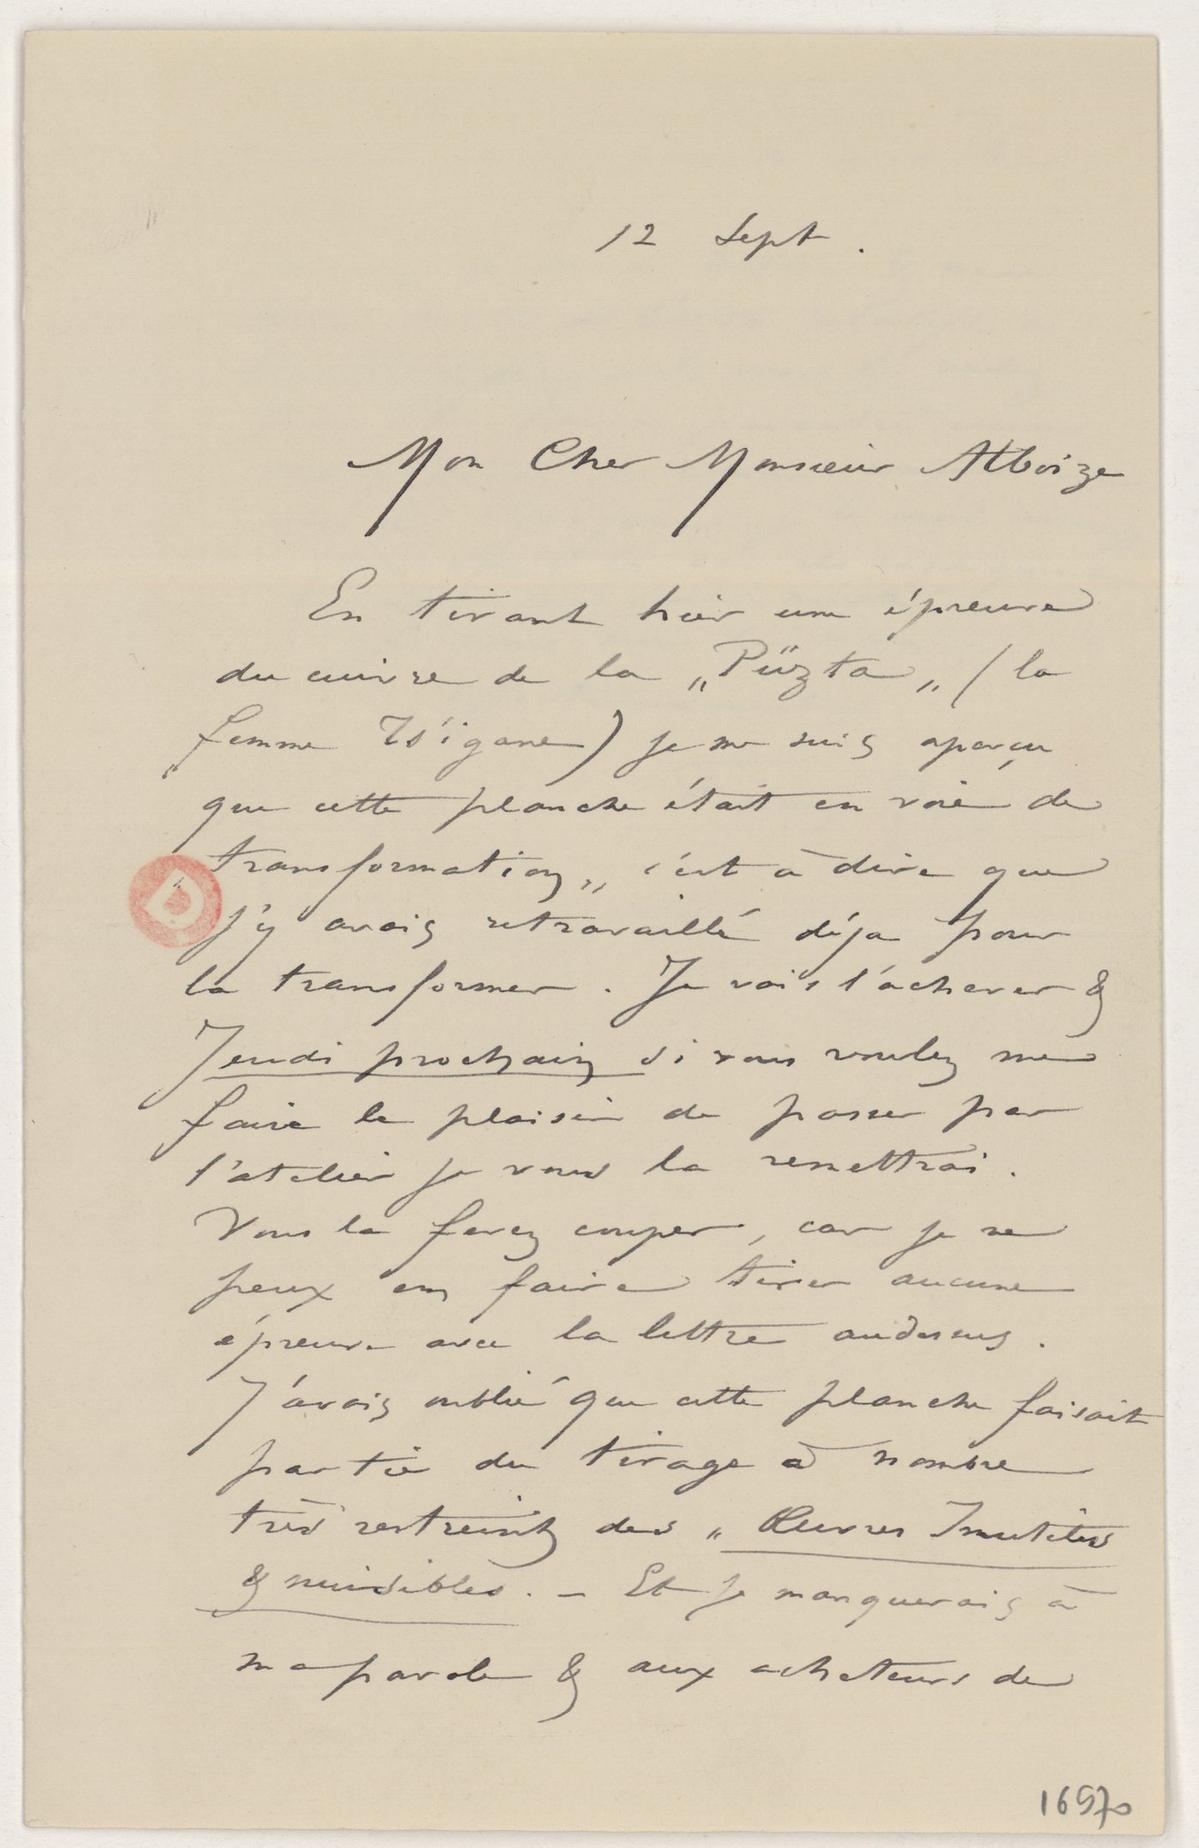 12 Sept.
Mon Cher Monsieur Alboize
En tirant hier une épreuve
du cuivre de la „Püzta„ (la
femme Tsigane) je me suis aperçu
que cette planche était en voie de
transformation,, c'est à dire que
j'y avais retravaillé déja pour
la transformer. Je vais l'achever &
Jeudi prochain si vous voulez me
faire le plaisir de passer par
l'atelier je vous la remettrai.
Vous la ferez couper, car je ne
peux en faire tirer aucune
épreuve avec la lettre audessus.
J'avais oublié que cette planche faisait
partie du tirage à nombre
très restreint des „ Œuvres Inutiles
& nuisibles. – Et je manquerais à
ma parole & aux acheteurs de
D
16970